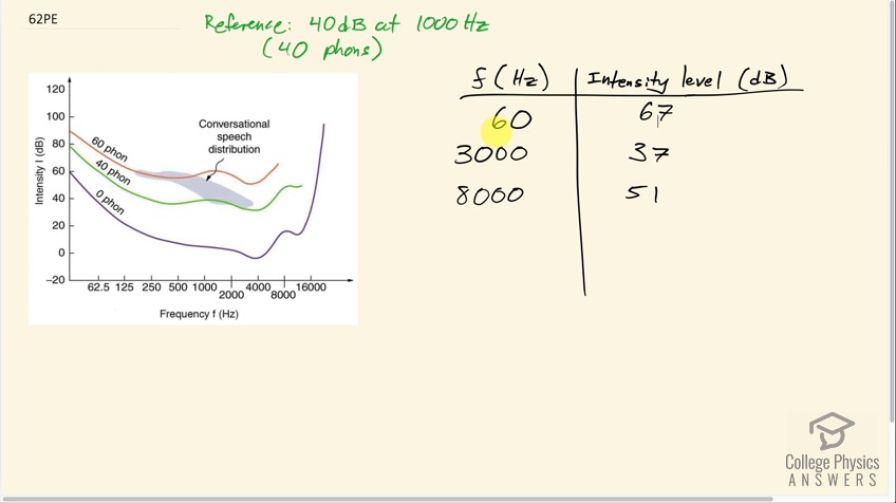 62PE
Reference: 40 dB at 1000 Hz
(40 phons)
f (Hz) Intensity level (dB)
60 67
3000 37
8000 51
120
100
80
60
40
20
0
−20
Intensity I (dB)
60 phon
40 phon
0 phon
Conversational
speech
distribution
62.5 125 250 500 1000 2000 4000 8000 16000
Frequency f (Hz)
College Physics
ANSWERS